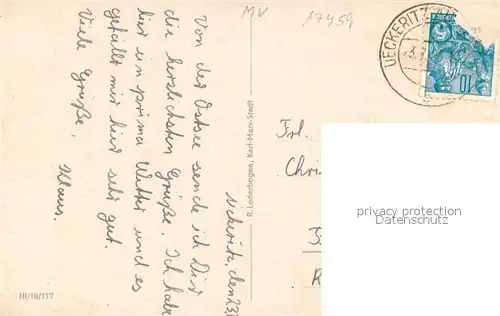 MV
17459
UECKERITZ
10
Ückeritz, den 23.
Von der Ostsee sende ich Dir
die herzlichsten Grüße. Ich habe
hier in prima Wetter und es
gefällt mir hier sehr gut.
Viele Grüße.
Klaus.
R. Lederbogen, Karl-Marx-Stadt
III/18/117
Frl.
Chri
privacy protection
Datenschutz